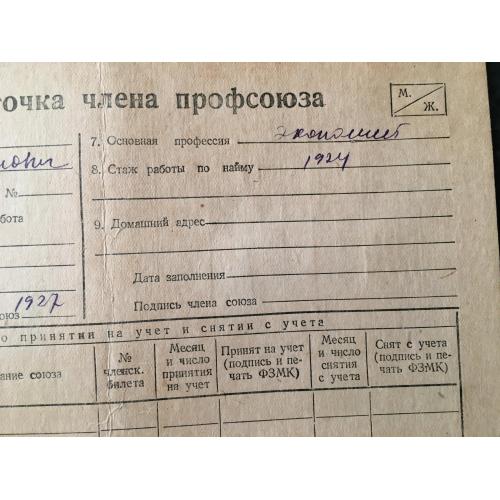 точка члена профсоюза
М.
Ж.
7. Основная профессия экономист
8. Стаж работы по найму 1924
№
бота
9. Домашний адрес
Дата заполнения
юз 1927
Подпись члена союза
о принятии на учет и снятии с учета
ание союза
№ членск. билета
Месяц и число принятия на учет
Принят на учет (подпись и печать ФЗМК)
Месяц и число снятия с учета
Снят с учета (подпись и печать ФЗМК)